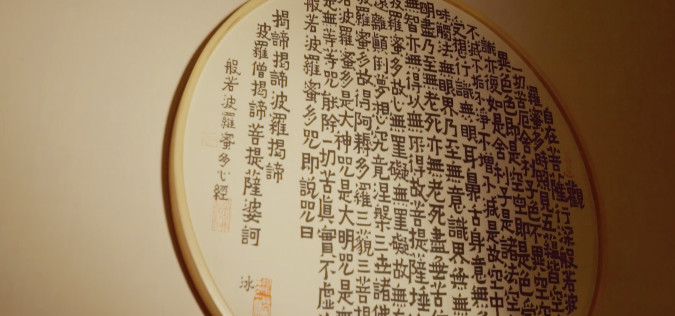 觀
自在菩薩行深般若波
羅蜜多時照見五蘊皆空
一切苦厄舍利子色不異空空
異色色即是空空即是色受
識亦復如是舍利子是諸法空
不滅不垢不淨不增不減是故空中
受想行識無眼耳鼻舌身意無
味觸法無眼界乃至無意識界無無
明盡乃至無老死亦無老死盡無苦
無智亦無得以無所得故菩提薩埵
波羅蜜多故心無罣礙無罣礙故無有
遠離顛倒夢想究竟涅槃三世諸佛
波羅蜜多故得阿耨多羅三藐三菩提
若波羅蜜多是大神咒是大明咒是無
是無等等咒能除一切苦真實不虛
般若波羅蜜多咒即說咒曰
揭諦揭諦波羅揭諦
波羅僧揭諦菩提薩婆訶
般若波羅蜜多心經
冰